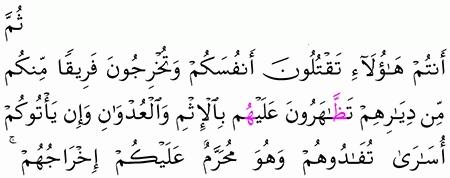 ثُمَّ
أَنتُمْ هَٰٓؤُلَآءِ تَقْتُلُونَ أَنفُسَكُمْ وَتُخْرِجُونَ فَرِيقًا مِّنكُم
مِّن دِيَٰرِهِمْ تَظَّٰهَرُونَ عَلَيْهُم بِٱلْإِثْمِ وَٱلْعُدْوَٰنِ وَإِن يَأْتُوكُمْ
أُسَٰرَىٰ تُفَٰدُوهُمْ وَهُوَ مُحَرَّمٌ عَلَيْكُمْ إِخْرَاجُهُمْ ۚ